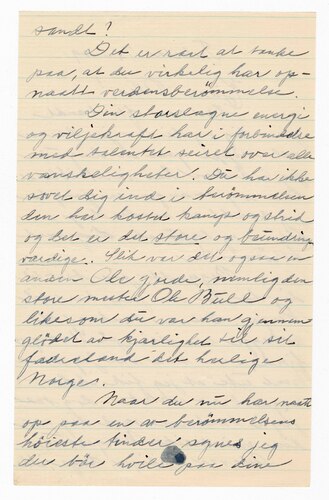 sandt?
Det er rart at tænke
paa, at du virkelig har op-
naatt verdensberömmelse.
Din storslagne energi
og viljekraft har i forbindelse
med talentet seiret over alle
vanskeligheter. Du har ikke
sovet dig ind i berömmelsen
den har kostet kamp og strid
og det er det store og beundrings
værdige. Slik var det ogsaa en
anden Ole gjorde, nemlig den
store mester Ole Bull og
likesom du var han gjennem
glödet av kjærlighet til sit
fædreland det herlige
Norge.
Naar du nu har naatt
op paa en av berömmelsens
höieste tinder, synes jeg
du bör hvile paa dine